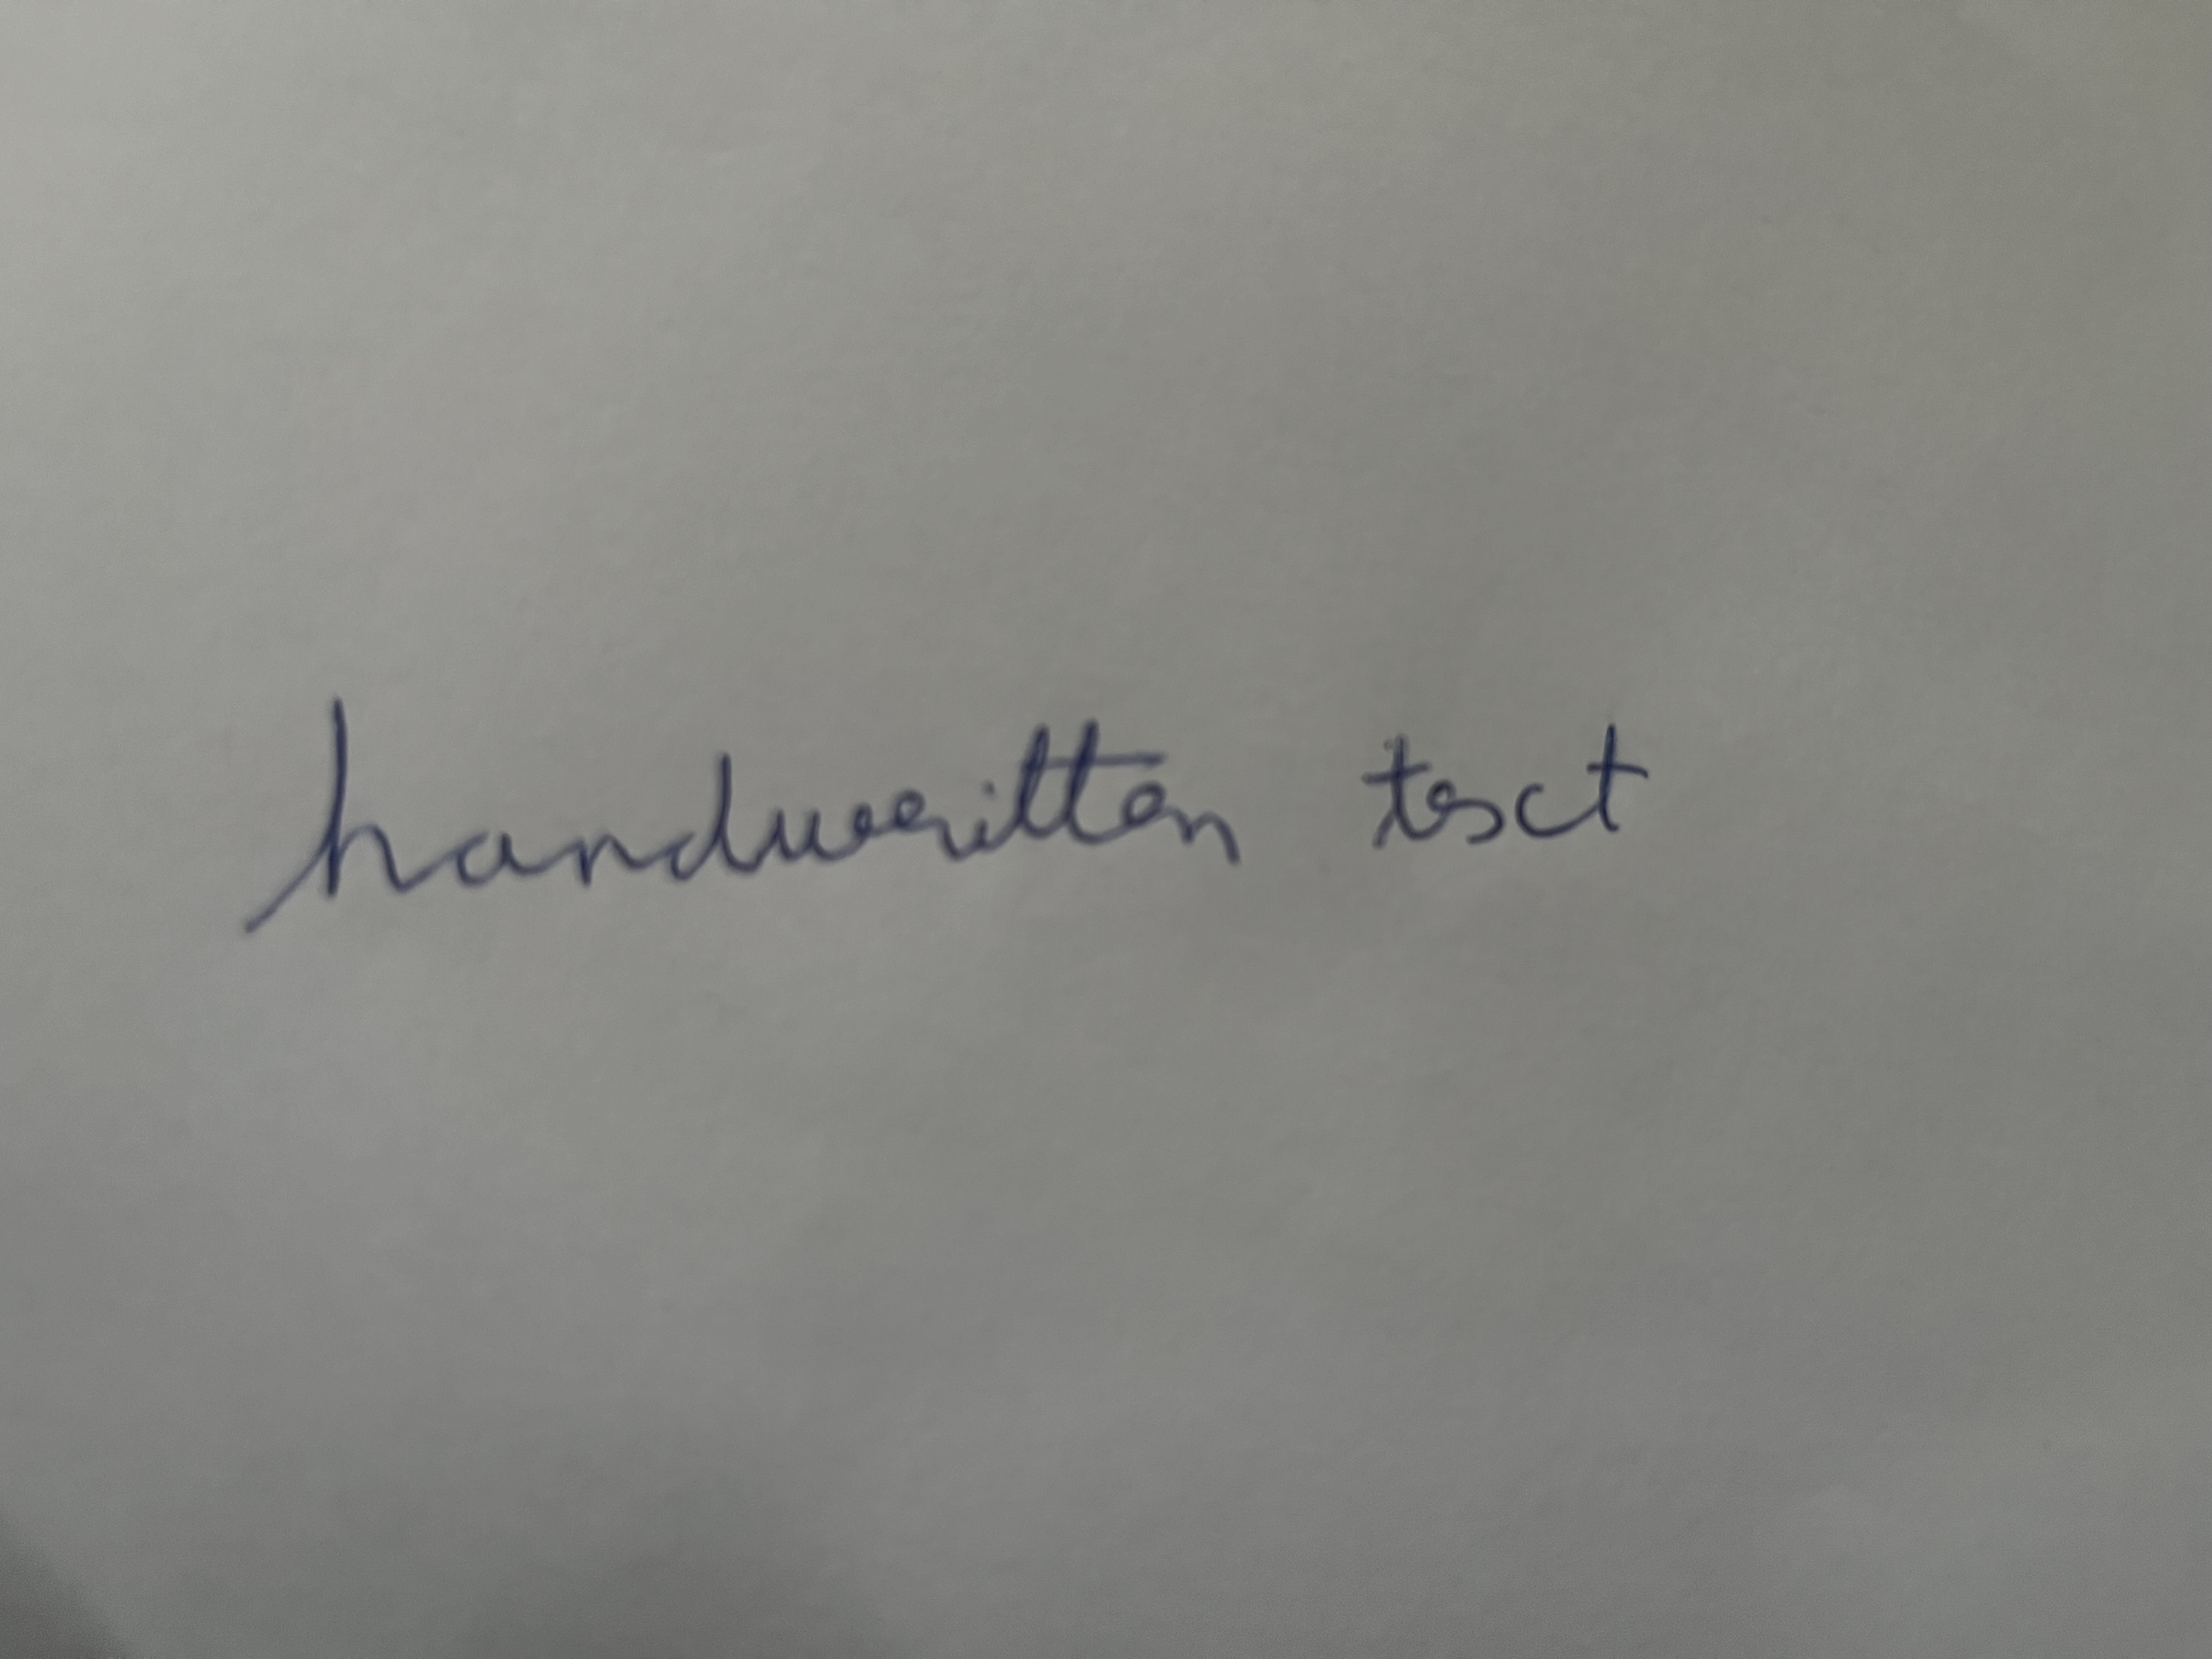 handwritten text